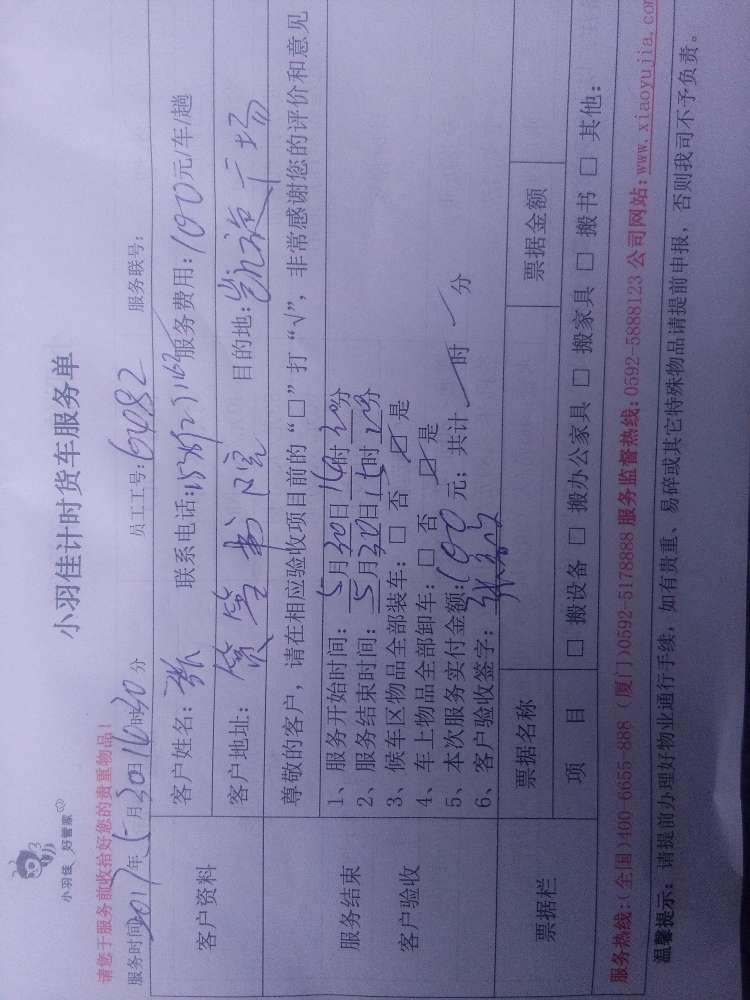 小羽佳 好管家
小羽佳计时货车服务单
请您于服务前收拾好您的贵重物品！
服务时间2017年5月30日16时30分 员工工号：6482 服务联号：
客户资料
客户姓名：张 联系电话： 服务费用：100元/车/趟
客户地址： 书院 目的地：凯旋广场
服务结束
客户验收
尊敬的客户，请在相应验收项目前的“□”打“√”，非常感谢您的评价和意见
1、服务开始时间：5月30日16时30分
2、服务结束时间：5月30日 时 分
3、候车区物品全部装车：□ 否 ☑ 是
4、车上物品全部卸车：□ 否 ☑ 是
5、本次服务实付金额：100元；共计 时 分
6、客户验收签字：张
票据栏
票据名称 票据金额
项 目 □ 搬设备 □ 搬办公家具 □ 搬家具 □ 搬书 □ 其他：
服务热线：(全国)400-6655-888 (厦门)0592-5178888 服务监督热线：0592-5888123 公司网站：www.xiaoyujia.com
温馨提示：请提前办理好物业通行手续，如有贵重、易碎或其它特殊物品请提前申报，否则我司不予负责。